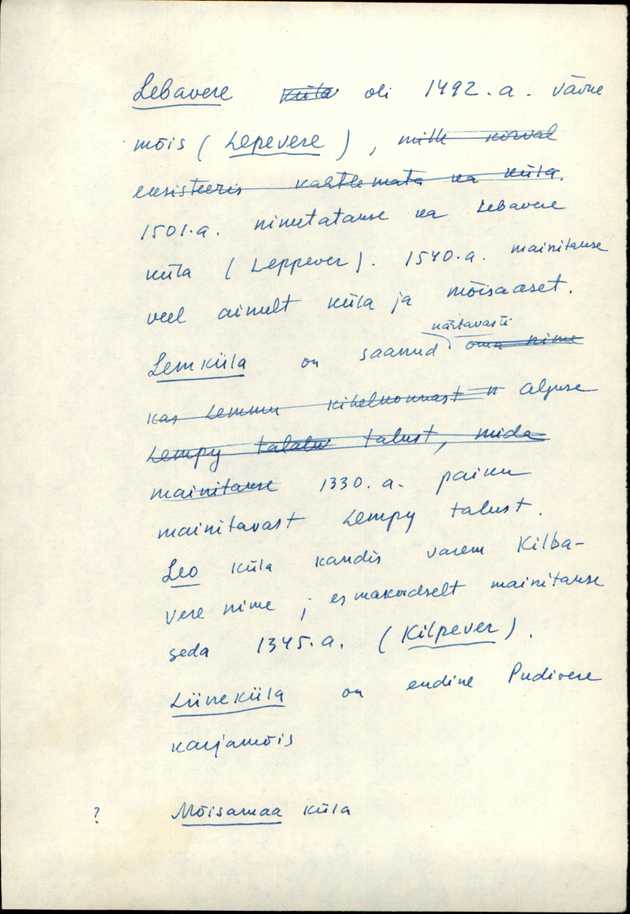 Lebavere küla oli 1492.a. väike
mõis (Lepevere), mille kõrval
eksisteeris kahtlemata ka küla.
1501.a. nimetatakse ka Lebavere
küla (Leppever). 1540.a. mainitakse
veel ainult küla ja mõisaaset.
näitavasti
Lemküla on saanud oma nime
kas Lemmu kihelkonnast v alguse
Lempy talalu talust, mida
mainitakse 1330.a. paiku
mainitavast Lempy talust.
Leo küla kandis varem Kilba-
vere nime; esmakordselt mainitakse
seda 1345.a. (Kilpever).
Liiveküla on endine Pudivere
karjamõis
? Mõisamaa küla